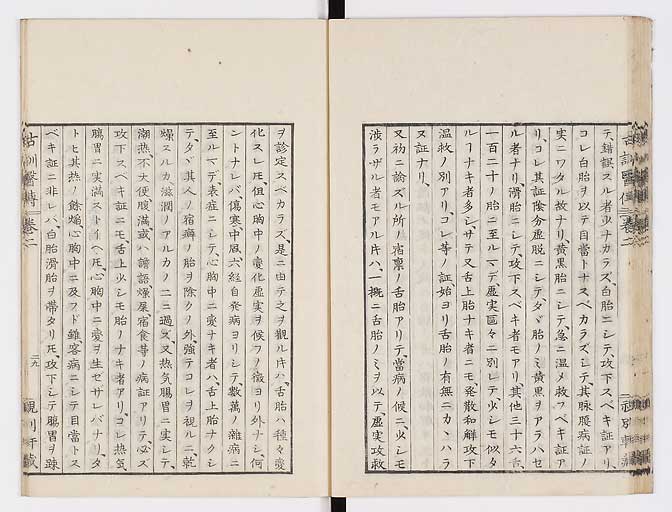 テ、錯誤スル者少ナカラズ、白胎ニシテ、攻下スベキ証アリ、
コレ白胎ヲ以テ目當トナスベカラズシテ、其脉腹病証ノ
実ニワタル故ナリ、黄黒胎ニシテ、急ニ温メ救フベキ証ア
リ、コレ其証陰分虚脱ニシテタヾ胎ノミ黄黒ヲアラハセ
ル者ナリ、滑胎ニシテ、攻下スベキ者モアリ、其他三十六舌、
一百二十ノ胎ニ至ルマデ、虚実區々ニ別レテ、少シモ似タ
ルヿナキ者多シ、サテ又舌上胎ナキ者ニモ、発散和解攻下
温救ノ別アリ、コレ等ノ証始ヨリ舌胎ノ有無ニカヽハラ
ヌ証ナリ、
又初ニ論ズル所ノ宿稟ノ舌胎アリテ、當病ノ候ニ、少シモ
渉ラザル者モアル片ハ、一概ニ舌胎ノミヲ以テ、虚実攻救
ヲ診定スベカラズ、是ニ由テ之ヲ觀ル片ハ、舌胎ハ種々変
化スレ𪜈但心胸中ノ変化虚実ヲ候フノ徴ヨリ外ナシ、何
ントナレバ、傷寒、中風、六経自発病ヨリシテ、數萬ノ雜病ニ
至ルマデ、表症ニシテ、心胸中ニ変ナキ者ハ、舌上胎ナクシ
テ、タヾ其人ノ宿癖ノ胎ヲ除クノ外、強テコレヲ視ルニ乾
燥スルカ滋潤ノアルカノ二ニ過ズ、又熱気腸胃ニ実シテ、
潮熱、不大便、腹満、或ハ譫語燥屎宿食等ノ病証アリテ、必ズ
攻下スベキ証ニモ、舌上少シモ胎ノナキ者アリ、コレ熱気
腸胃ニ実満ストイヘ𪜈、心胸中ニ変ヲ生ゼザレバナリ、タ
トヒ其熱ノ餘焔心胸中ニ及フ𪜈雖客病ニシテ目當トス
ベキ証ニ非レバ、白胎滑胎ヲ帶タリ𪜈、攻下シテ腸胃ヲ踈
古訓醫傳 卷二
二九